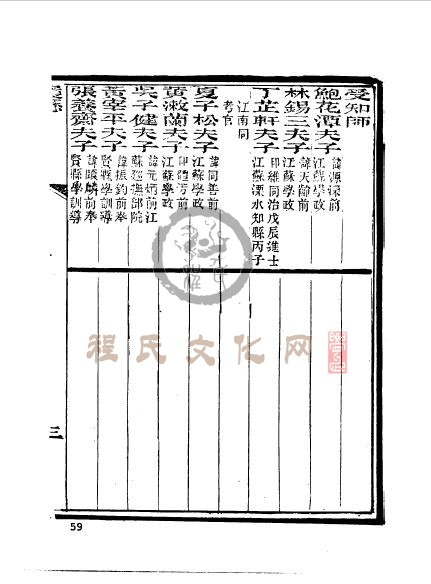 受知師
鮑花潭夫子 諱源深前江蘇學政
林錫三夫子 諱天齡前江蘇學政
丁芷軒夫子 印維同治戊辰進士江蘇溧水知縣丙子
江南同考官
夏子松夫子 諱同善前江蘇學政
黃漱蘭夫子 印體芳前江蘇學政
吳子健夫子 諱元炳前江蘇巡撫部院
黃宰平夫子 諱振鈞前奉賢縣學訓導
張養齋夫子 前奉賢縣學訓導
三
程氏文化网
59